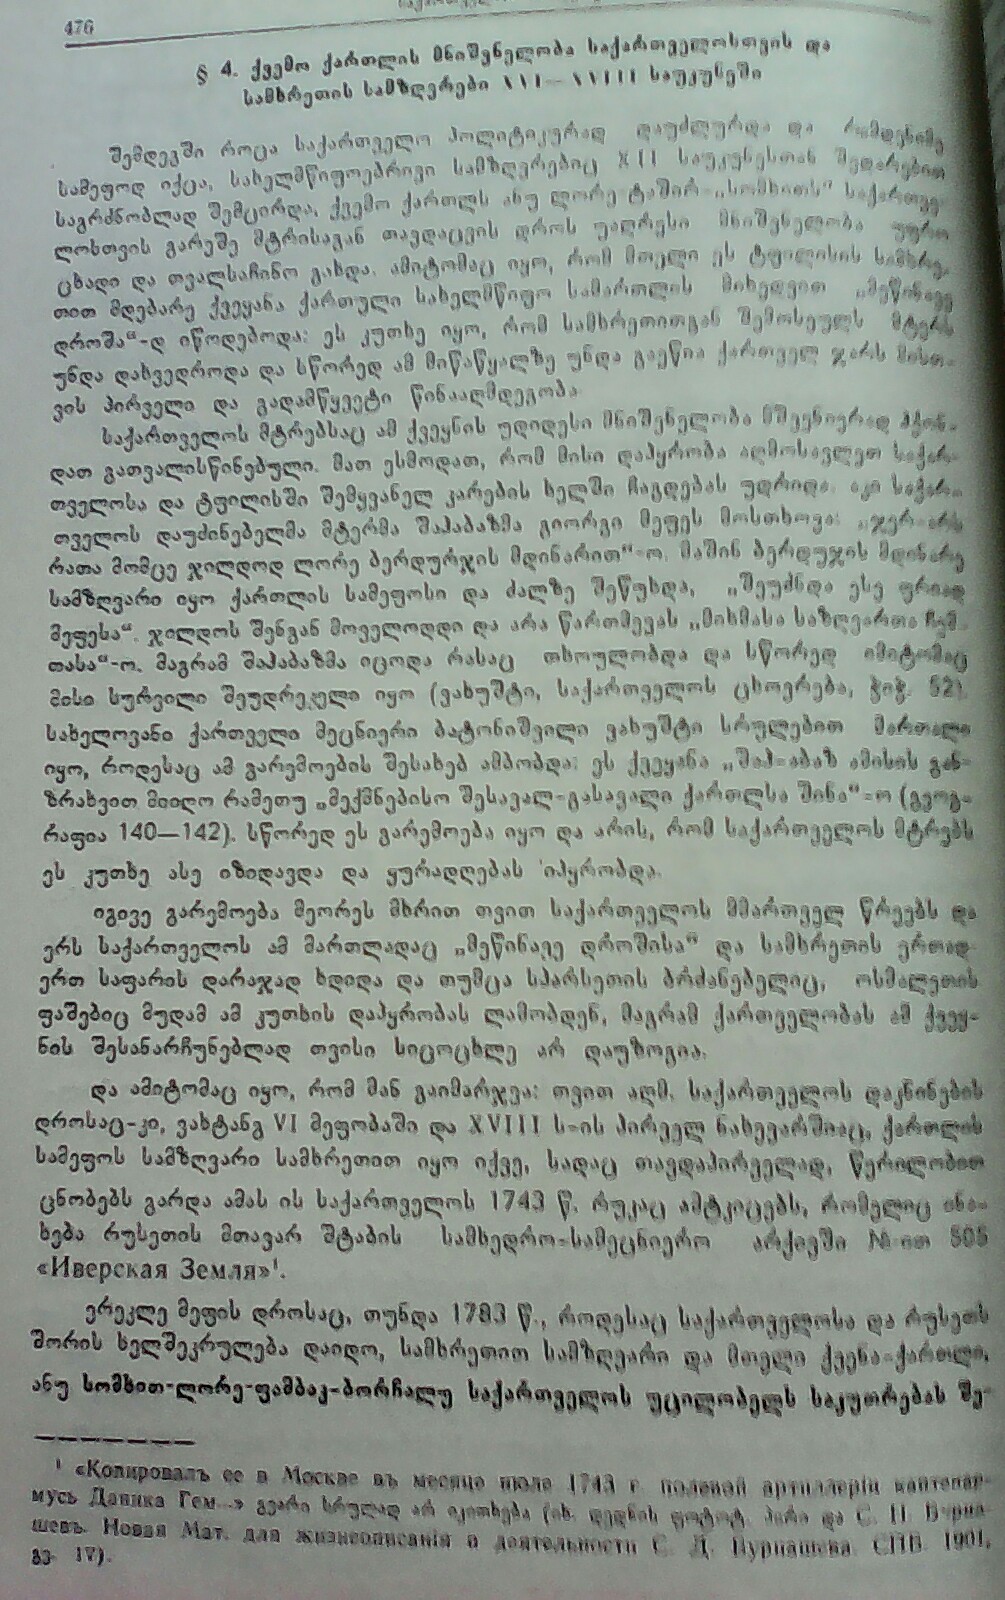 476
§ 4. ქვემო ქართლის მნიშვნელობა საქართველოსთვის და
სამხრეთის სამზღვრები XVI—XVIII საუკუნეში
შემდეგში როცა საქართველო პოლიტიკურად დაუძლურდა და რამდენიმე
სამეფოდ იქცა, სახელმწიფოებრივი სამზღვრებიც XII საუკუნესთან შედარებით
საგრძნობლად შემცირდა, ქვემო ქართლს ანუ ლორე-ტაშირ-„სომხითს“ საქართვე-
ლოსთვის გარეშე მტრისაგან თავდაცვის დროს უაღრესი მნიშვნელობა უფრო
ცხადი და თვალსაჩინო გახდა. ამიტომაც იყო, რომ მთელი ეს ტფილისის სამხრე-
თით მდებარე ქვეყანა ქართული სახელმწიფო სამართლის მიხედვით „მეწინავე
დროშა“-დ იწოდებოდა: ეს კუთხე იყო, რომ სამხრეთითგან შემოსეულს მტერს
უნდა დახვედროდა და სწორედ ამ მიწაწყალზე უნდა გაეწია ქართველ ჯარს მისთ-
ვის პირველი და გადამწყვეტი წინააღმდეგობა.
საქართველოს მტრებსაც ამ ქვეყნის უდიდესი მნიშვნელობა მშვენივრად ჰქონ-
დათ გათვალისწინებული. მათ ესმოდათ, რომ მისი დაპყრობა აღმოსავლეთ საქარ-
თველოსა და ტფილისში შემყვანელ კარების ხელში ჩაგდებას უდრიდა. აკი საქარ-
თველოს დაუძინებელმა მტერმა შაჰაბაზმა გიორგი მეფეს მოსთხოვა: „ჯერ-არს
რათა მომცე ჯილდოდ ლორე ბერდურჯის მდინარით“-ო. მაშინ ბერდუჯის მდინარე
სამზღვარი იყო ქართლის სამეფოსი და ძალზე შეწუხდა, „შეუძნდა ესე ფრიად
მეფესა“. ჯილდოს შენგან მოველოდდი და არა წართმევას „მიხმასა საზღვართა ჩემ-
თასა“-ო. მაგრამ შაჰაბაზმა იცოდა რასაც თხოულობდა და სწორედ იმიტომაც
მისი სურვილი შეუდრეკელი იყო (ვახუშტი, საქართველოს ცხოვრება, ჭიჭ. 52).
სახელოვანი ქართველი მეცნიერი ბატონიშვილი ვახუშტი სრულებით მართალი
იყო, როდესაც ამ გარემოების შესახებ ამბობდა: ეს ქვეყანა „შაჰ-აბაზ ამისის გან-
ზრახვით მიიღო რამეთუ „მექმნებისო შესავალ-გასავალი ქართლსა შინა“-ო (გეოგ-
რაფია 140—142). სწორედ ეს გარემოება იყო და არის, რომ საქართველოს მტრებს
ეს კუთხე ასე იზიდავდა და ყურადღებას იპყრობდა.
იგივე გარემოება მეორეს მხრით თვით საქართველოს მმართველ წრეებს და
ერს საქართველოს ამ მართლადაც „მეწინავე დროშისა“ და სამხრეთის ერთად-
ერთ საფარის დარაჯად ხდიდა და თუმცა სპარსეთის ბრძანებელიც, ოსმალეთის
ფაშებიც მუდამ ამ კუთხის დაპყრობას ლამობდენ, მაგრამ ქართველობას ამ ქვეყ-
ნის შესანარჩუნებლად თვისი სიცოცხლე არ დაუზოგია.
და ამიტომაც იყო, რომ მან გაიმარჯვა: თვით აღმ. საქართველოს დაკნინების
დროსაც-კი, ვახტანგ VI მეფობაში და XVIII ს-ის პირველ ნახევარშიაც, ქართლის
სამეფოს სამზღვარი სამხრეთით იყო იქვე, სადაც თავდაპირველად, წერილობით
ცნობებს გარდა ამას ის საქართველოს 1743 წ. რუკაც ამტკიცებს, რომელიც ინა-
ხება რუსეთის მთავარ შტაბის სამხედრო-სამეცნიერო არქივში №-ით 505
«Иверская Земля»¹.
ერეკლე მეფის დროსაც, თუნდა 1783 წ., როდესაც საქართველოსა და რუსეთს
შორის ხელშეკრულება დაიდო, სამხრეთით სამზღვარი და მთელი ქვენა-ქართლი,
ანუ სომხით-ლორე-ფამბაკ-ბორჩალუ საქართველოს უცილობელს საკუთრებას შე-
¹ «Копировалъ ее в Москве въ месяце июле 1743 г. полевой артиллерiи каптенар-
мусъ Даника Гем...» გვარი სრულად არ იკითხება (იხ. დედნის ფოტოტ. პირი და С. Н. Бурна-
шевъ. Новая Мат. для жизнеописанiя и деятельности С. Д. Бурнашева. СПБ. 1901,
გვ. IV).